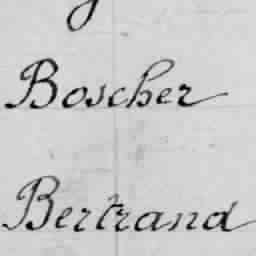 Boscher
Bertrand